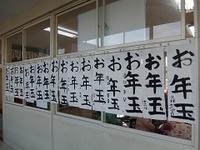 お年玉
お年玉
お年玉
お年玉
お年玉
お年玉
お年玉
お年玉
お年玉
お年玉
お年玉
お年玉